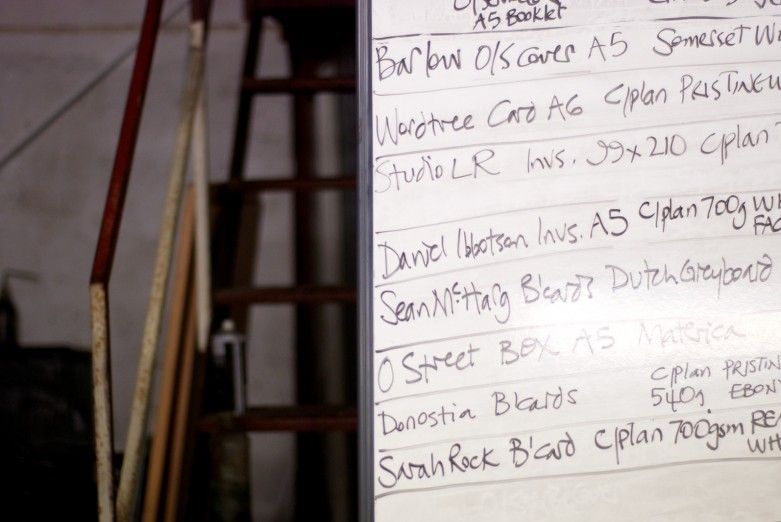 A5 Booklet
Barlow O/S Cover A5 Somerset
Wordtree Card A6 C/plan PRISTINE W
Studio LR Invs. 99x210 C/plan
Daniel Ibbotson Invs. A5 C/plan 700g WH
FAC
Sean McHarg B'cards Dutch Greyboard
O Street BOX A5 Materica
Donostia B'cards C/plan PRISTIN
540g EBON
Sarah Rock B'card C/plan 700gsm RE
WH